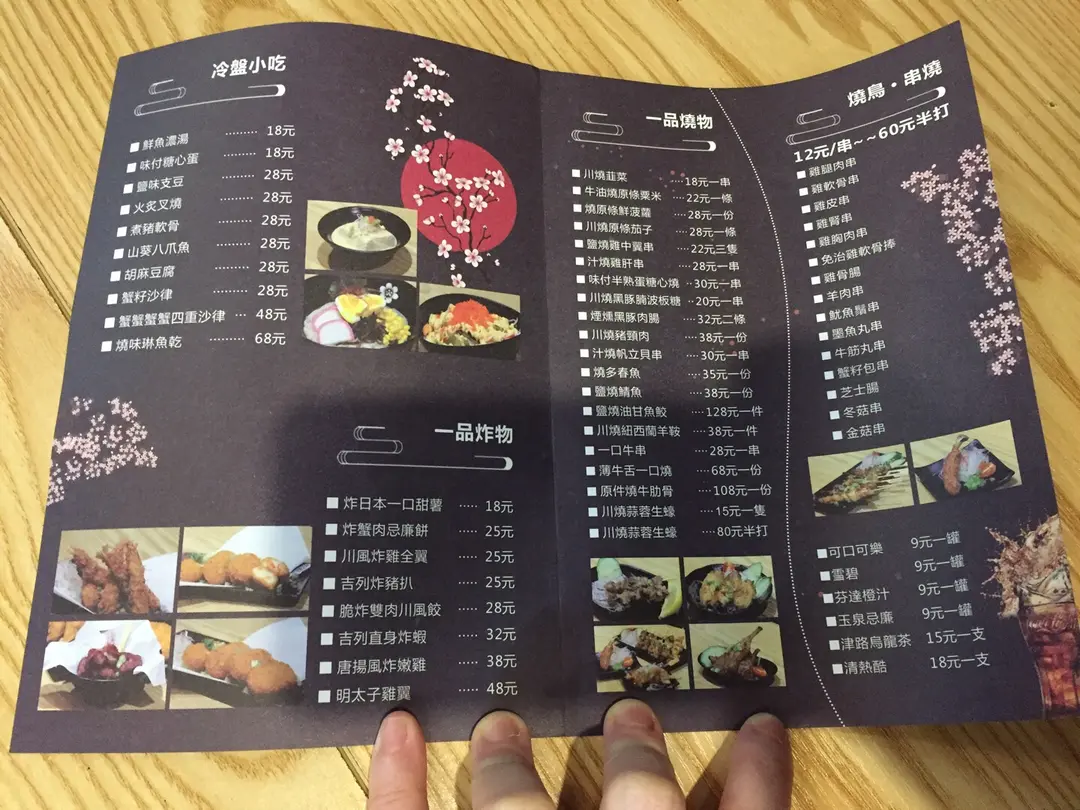 冷盤小吃
鮮魚濃湯 ········ 18元
味付糖心蛋 ········ 18元
鹽味支豆 ········ 28元
火炙叉燒 ········ 28元
煮豬軟骨 ········ 28元
山葵八爪魚 ········ 28元
胡麻豆腐 ········ 28元
蟹籽沙律 ········ 28元
蟹蟹蟹蟹四重沙律 ··· 48元
燒味琳魚乾 ········ 68元
一品炸物
炸日本一口甜薯 ····· 18元
炸蟹肉忌廉餅 ····· 25元
川風炸雞全翼 ····· 25元
吉列炸豬扒 ····· 25元
脆炸雙肉川風餃 ····· 28元
吉列直身炸蝦 ····· 32元
唐揚風炸嫩雞 ····· 38元
明太子雞翼 ····· 48元
一品燒物
川燒韮菜 ····18元一串
牛油燒原條粟米 ····22元一條
燒原條鮮菠蘿 ····28元一份
川燒原條茄子 ····28元一條
鹽燒雞中翼串 ····22元三隻
汁燒雞肝串 ····28元一串
味付半熟蛋糖心燒 ··30元一串
川燒黑豚腩波板糖 ··20元一串
煙燻黑豚肉腸 ····32元二條
川燒豬頸肉 ····38元一份
汁燒帆立貝串 ····30元一串
燒多春魚 ····35元一份
鹽燒鯖魚 ····38元一份
鹽燒油甘魚鮫 ····128元一件
川燒紐西蘭羊鞍 ····38元一件
一口牛串 ····28元一串
薄牛舌一口燒 ····68元一份
原件燒牛肋骨 ····108元一份
川燒蒜蓉生蠔 ····15元一隻
川燒蒜蓉生蠔 ····80元半打
燒鳥·串燒
12元/串~~60元半打
雞腿肉串
雞軟骨串
雞皮串
雞腎串
雞胸肉串
免治雞軟骨捧
雞骨腸
羊肉串
魷魚鬚串
墨魚丸串
牛筋丸串
蟹籽包串
芝士腸
冬菇串
金菇串
可口可樂 9元一罐
雪碧 9元一罐
芬達橙汁 9元一罐
玉泉忌廉 9元一罐
津路烏龍茶 15元一支
清熱酷 18元一支